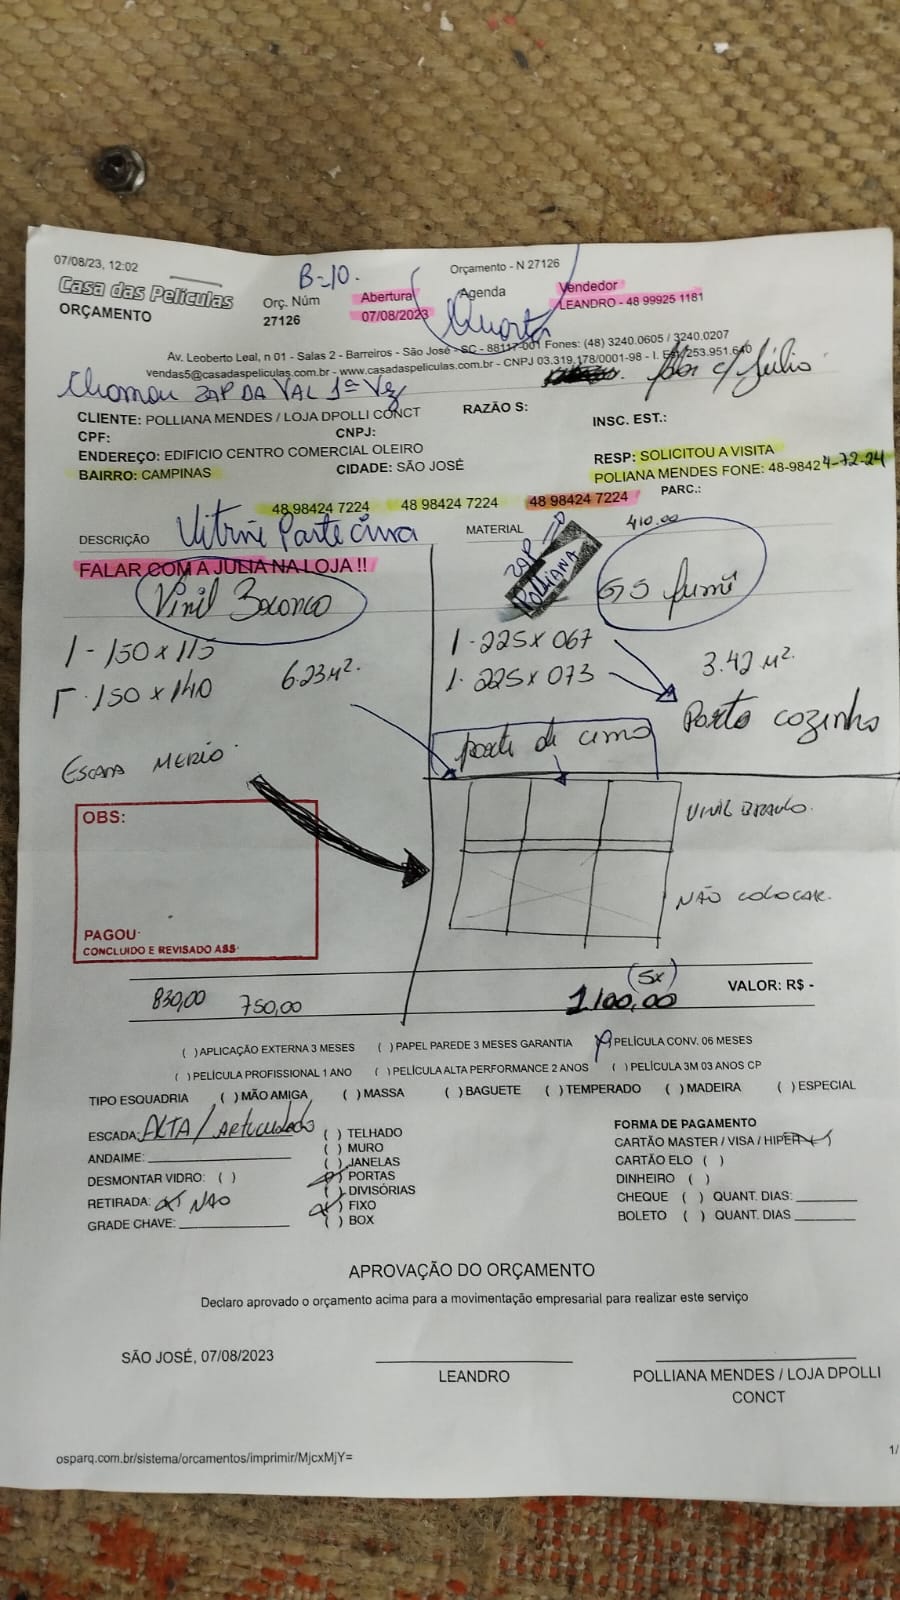 07/08/23, 12:02
Orçamento - N 27126
B-10.
Casa das Películas
ORÇAMENTO
Orç. Núm
27126
Abertura
07/08/2023
Agenda
Quarta
Vendedor
LEANDRO - 48 99925 1181
Av. Leoberto Leal, n 01 - Salas 2 - Barreiros - São José - SC - 88117-001 Fones: (48) 3240.0605 / 3240.0207
vendas5@casadaspeliculas.com.br - www.casadaspeliculas.com.br - CNPJ 03.319.178/0001-98 - I. Est 253.951.640
c/ Júlio
Chamou ZAP DA VAL 1ª Vez
CLIENTE: POLLIANA MENDES / LOJA DPOLLI CONCT
RAZÃO S:
INSC. EST.:
CPF:
CNPJ:
ENDEREÇO: EDIFICIO CENTRO COMERCIAL OLEIRO
BAIRRO: CAMPINAS
CIDADE: SÃO JOSÉ
RESP: SOLICITOU A VISITA
POLIANA MENDES FONE: 48-98424-72-24
48 98424 7224
48 98424 7224
48 98424 7224
PARC.:
DESCRIÇÃO
Vitrine Parte cima
MATERIAL
410.00
FALAR COM A JULIA NA LOJA !!
ZAP
POLLIANA
Vinil Branco
G5 fumê
1 - 150 x 115
1 - 150 x 140
6.23 M².
1 - 225 x 067
1 - 225 x 073
3.42 M².
Porta cozinha
parte de cima
ESCADA MÉDIO
OBS:
PAGOU:
CONCLUIDO E REVISADO ASS:
VINIL BRANCO.
NÃO COLOCAR.
830,00
750,00
(5x)
1.100,00
VALOR: R$ -
( ) APLICAÇÃO EXTERNA 3 MESES
( ) PAPEL PAREDE 3 MESES GARANTIA
( ) PELÍCULA CONV. 06 MESES
( ) PELÍCULA PROFISSIONAL 1 ANO
( ) PELÍCULA ALTA PERFORMANCE 2 ANOS
( ) PELÍCULA 3M 03 ANOS CP
TIPO ESQUADRIA
( ) MÃO AMIGA
( ) MASSA
( ) BAGUETE
( ) TEMPERADO
( ) MADEIRA
( ) ESPECIAL
ESCADA: ALTA / Articulado
ANDAIME:
DESMONTAR VIDRO: ( )
RETIRADA: NÃO
GRADE CHAVE:
( ) TELHADO
( ) MURO
( ) JANELAS
( ) PORTAS
( ) DIVISÓRIAS
( ) FIXO
( ) BOX
FORMA DE PAGAMENTO
CARTÃO MASTER / VISA / HIPER
CARTÃO ELO ( )
DINHEIRO ( )
CHEQUE ( ) QUANT. DIAS:
BOLETO ( ) QUANT. DIAS
APROVAÇÃO DO ORÇAMENTO
Declaro aprovado o orçamento acima para a movimentação empresarial para realizar este serviço
SÃO JOSÉ, 07/08/2023
LEANDRO
POLLIANA MENDES / LOJA DPOLLI
CONCT
osparq.com.br/sistema/orcamentos/imprimir/MjcxMjY=
1/